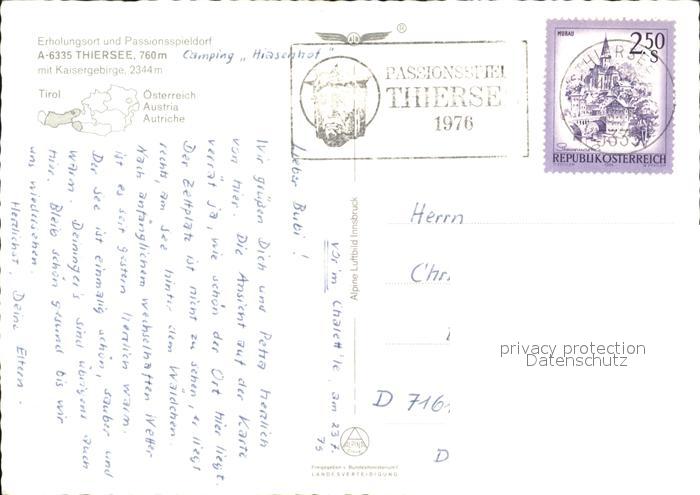 Erholungsort und Passionsspieldorf
A-6335 THIERSEE, 760m Camping „Hiasenhof"
mit Kaisergebirge, 2344m
Tirol
Österreich
Austria
Autriche
®
PASSIONSSPIEL
THIERSE
1976
MURAU
2.50
S
THIERSEE
6335
REPUBLIK ÖSTERREICH
Lieber Burbi!
vor'm am 23.7.
75
Wir grüßen Dich und Petra herzlich
von hier. Die Ansicht auf der Karte
verrät ja, wie schön der Ort hier liegt.
Der Zeltplatz ist nicht zu sehen, er liegt
rechts am See hinter dem Wäldchen.
Nach anfänglichem wechselhaften Wetter
ist es seit gestern herrlich warm.
Der See ist einmalig schön, sauber und
warm. Deininger's sind übrigens auch
hier. Bleib schön gesund bis wir
uns wiedersehen.
Herzlichst, Deine Eltern.
Alpine Luftbild Innsbruck
ALPINE
Freigegeben v. Bundesministerium f.
LANDESVERTEIDIGUNG
Herrn
Chr.
D 716
D
privacy protection
Datenschutz